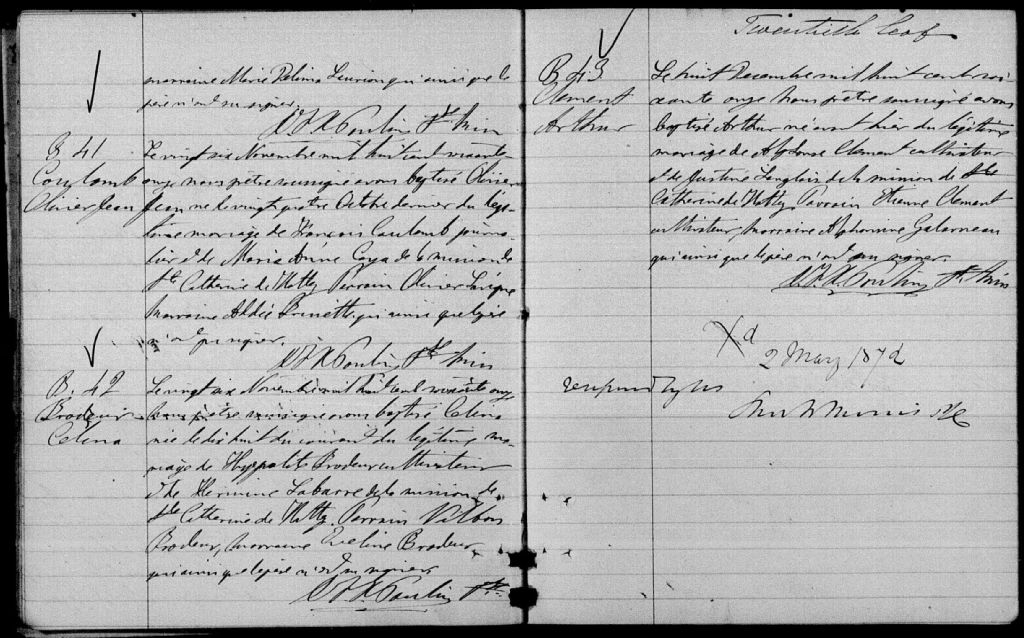 marraine Marie Delima qui ainsi que le
père n'ont su signer.
Ptre Miss
B. 41
Coulomb
Olivier Jean
Le vingt six Novembre mil huit cent soixante
onze nous prêtre soussigné avons baptisé Olivier
Jean né le vingt quatre Octobre dernier du légi-
time mariage de François Coulomb journa-
lier et de Marie Anne de la mission de
Ste Catherine de Hatley Parrain Olivier
Marraine Brunette, qui ainsi que le père
n'ont pu signer.
Ptre Miss
B. 42
Brodeur
Celina
Le vingt six Novembre mil huit cent soixante onze
nous prêtre soussigné avons baptisé Celina
née le dix huit du courant du légitime ma-
riage de Hyppolite Brodeur cultivateur
et de Hermine Labarre de la mission de
Ste Catherine de Hatley. Parrain
Brodeur, marraine Eveline Brodeur,
qui ainsi que le père n'ont su signer
Ptre
Twentieth leaf
B 43
Clement
Arthur
Le huit Decembre mil huit cent soi-
xante onze nous prêtre soussigné avons
baptisé Arthur né avant hier du légitime
mariage de Alphonse Clement cultivateur
et de Justine Langlois de la mission de Ste
Catherine de Hatley Parrain Etienne Clement
cultivateur, marraine Alphonsine Galarneau
qui ainsi que le père n'ont su signer
Ptre Miss
2 May 1872